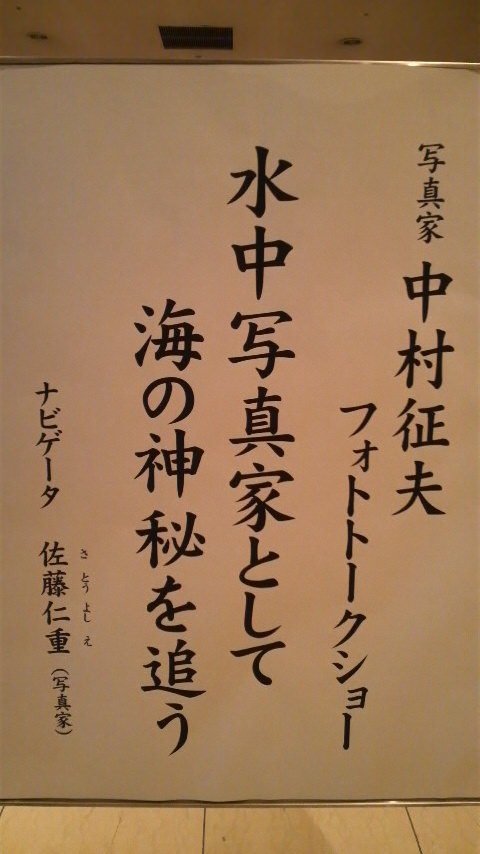 写真家 中村征夫
フォトトークショー
水中写真家として
海の神秘を追う
ナビゲータ 佐藤仁重（写真家）
さとうよしえ